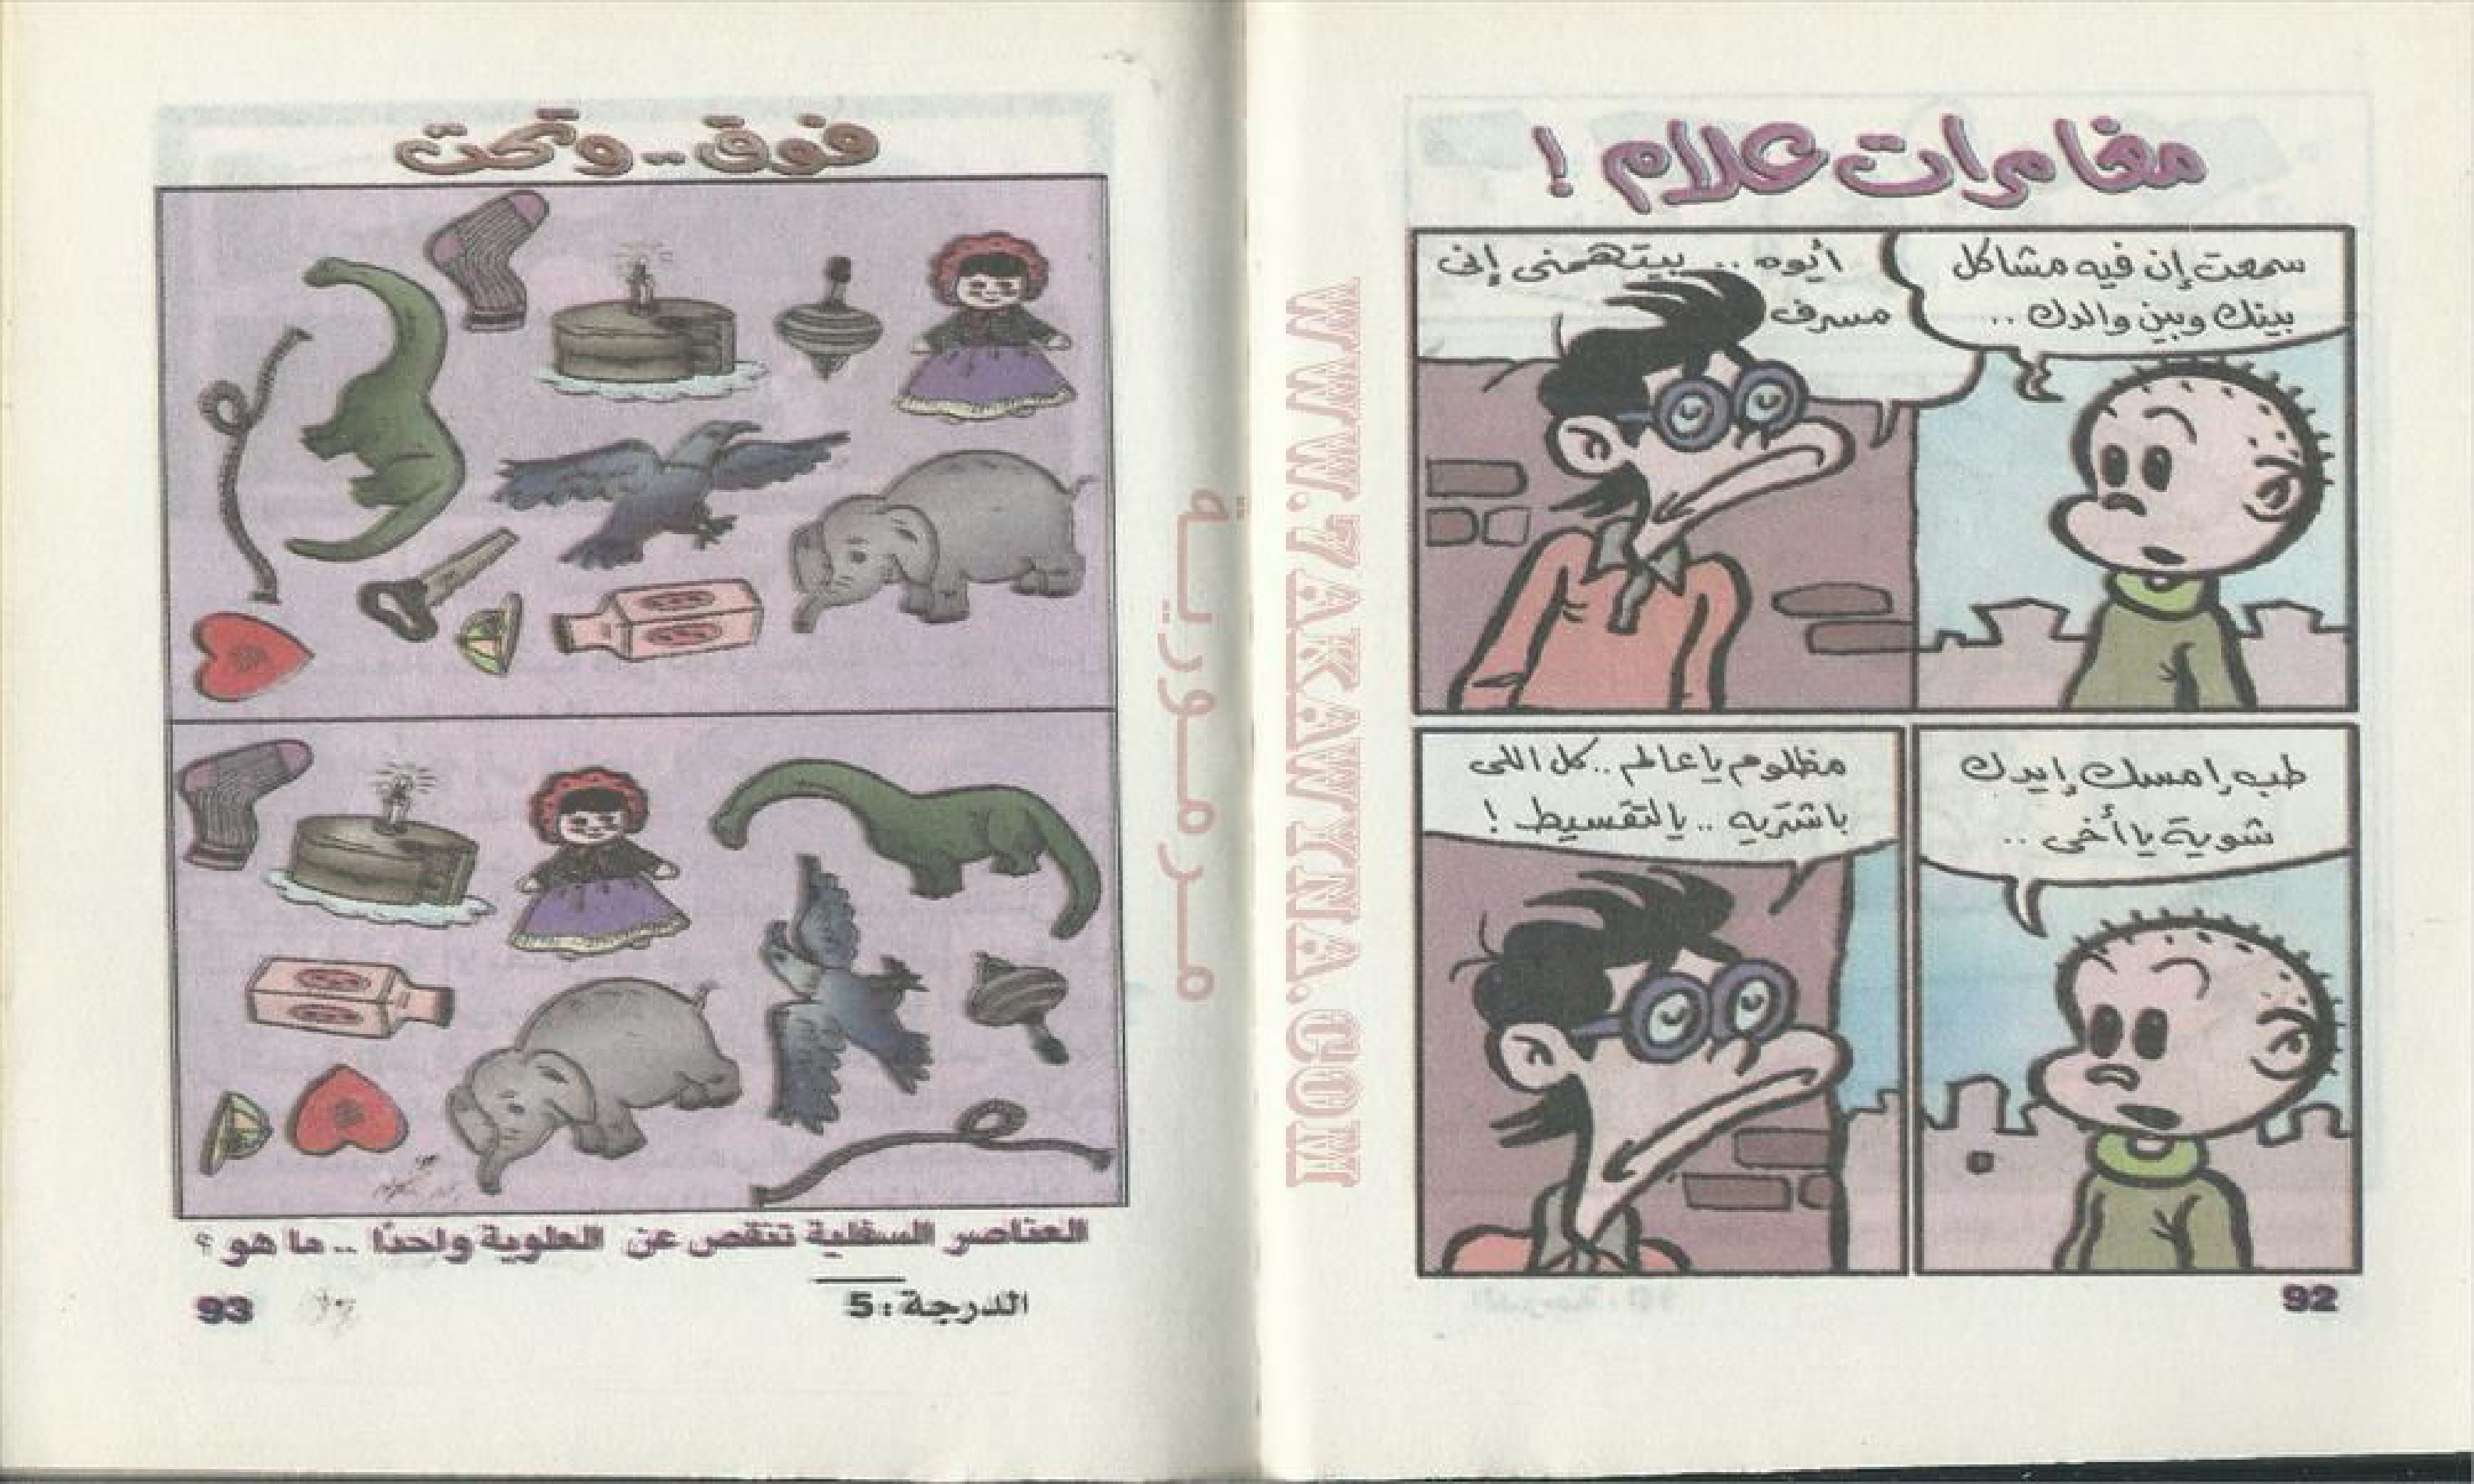 مغامرات علام !
سمعت إن فيه مشاكل
بينك وبين والدك ..
أيوه .. بيتهمنى إنى
مسرف
طب إمسك إيدك
شوية يا أخى ..
مظلوم يا عالم .. كل اللى
باشتريه .. بالتقسيط !
92
WWW.7AKAWYNA.COM
مرمورية
فوق - وتحت
العناصر السفلية تنقص عن العلوية واحدًا .. ما هو ؟
الدرجة : 5
93